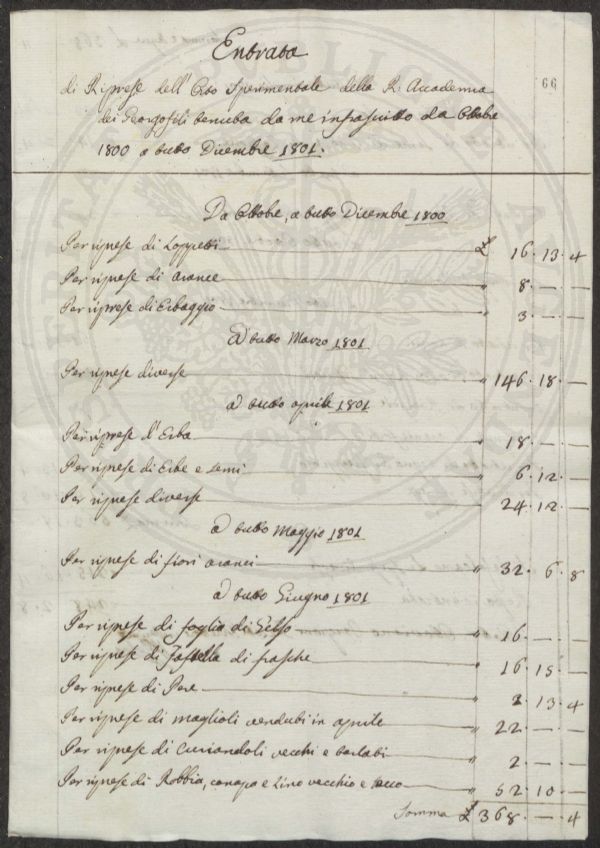 66
Entrata
di Riprese dell'Orto Sperimentale della R. Accademia
dei Georgofili tenuta da me infrascritto da Ottobre
1800 a tutto Dicembre 1801.
Da Ottobre, a tutto Dicembre 1800
Per riprese di £ 16. 13. 4
Per riprese di arance " 8. — . —
Per riprese di Erbaggio " 3. — . —
A tutto Marzo 1801
Per riprese diverse " 146. 18. —
A tutto aprile 1801
Per riprese d'Erba " 18. — . —
Per riprese di Erbe e Semi " 6. 12. —
Per riprese diverse " 24. 12. —
A tutto Maggio 1801
Per riprese di fiori aranci " 32. 6. 8
A tutto Giugno 1801
Per riprese di foglia di Gelso " 16. — . —
Per riprese di Fastella di frasche " 16. 15. —
Per riprese di Pere " 2. 13. 4
Per riprese di maglioli venduti in aprile " 22. — . —
Per riprese di vecchi e " 2. — . —
Per riprese di Robbia, canapa e Lino vecchio e secco " 52. 10. —
Somma £ 368. — . 4